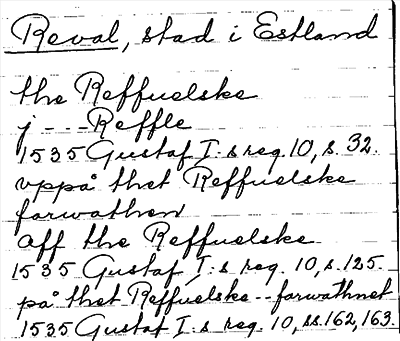 Reval, stad i Estland
the Reffuelske
j - - - Reffle
1535 Gustaf I:s reg. 10, s. 32.
vppå thet Reffuelske
farwathen
aff the Reffuelske
1535 Gustaf I:s reg. 10, s. 125.
på thet Reffuelske - - farwathnet
1535 Gustaf I:s reg. 10, ss. 162, 163.